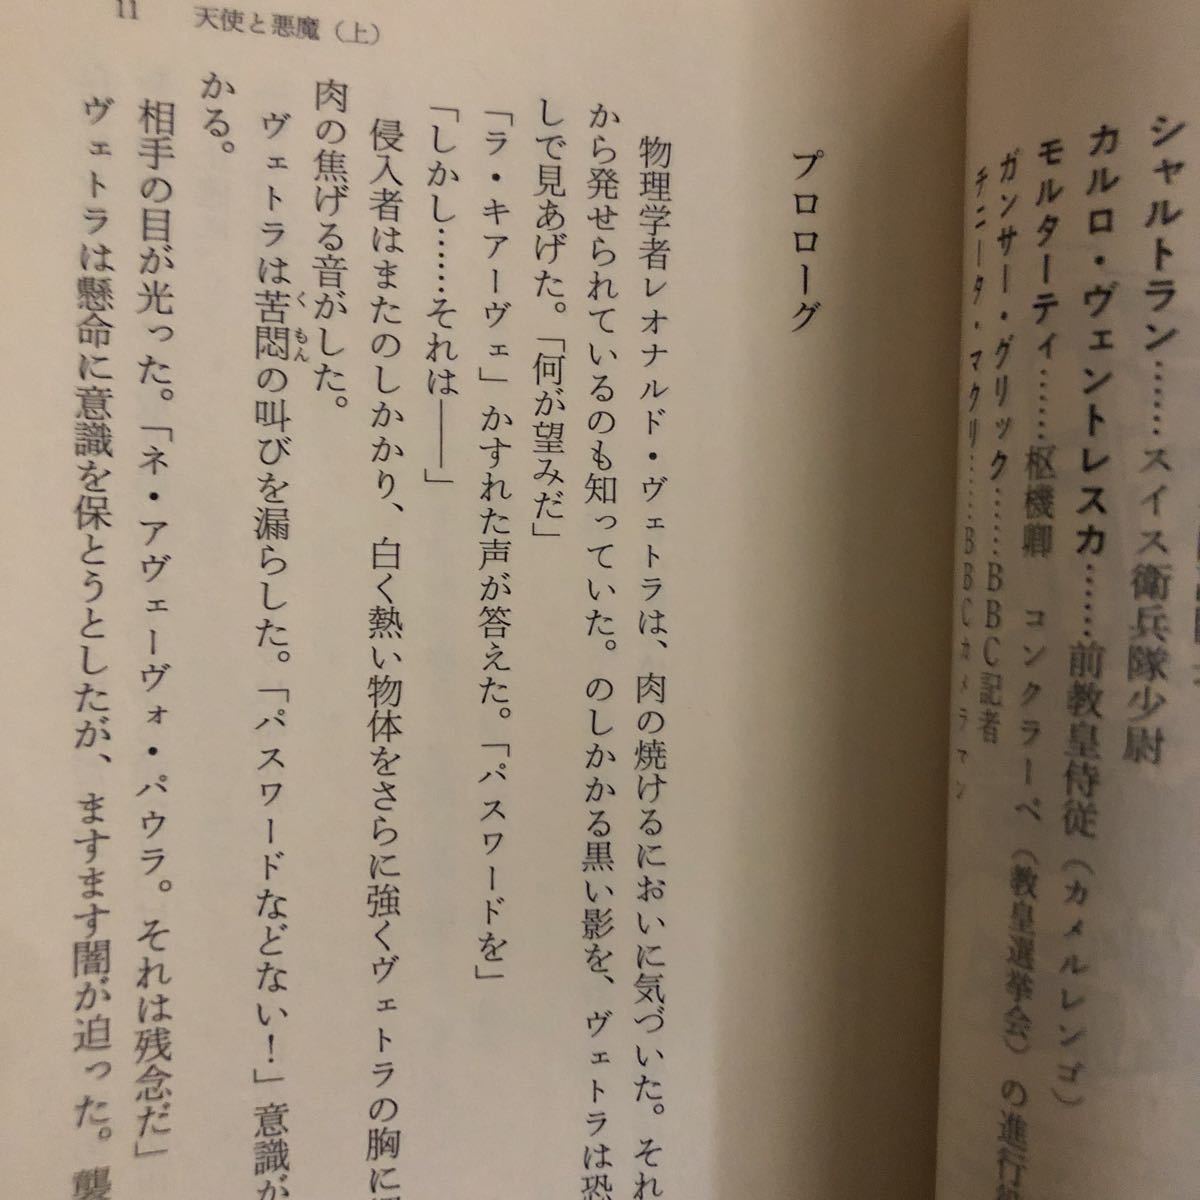 シャルトラン……スイス衛兵隊少尉
カルロ・ヴェントレスカ……前教皇侍従（カメルレンゴ）
モルターティ……枢機卿　コンクラーベ（教皇選挙会）の進行
ガンサー・グリック……BBC記者
チニータ・マクリ……BBCカメラマン
11　天使と悪魔（上）
プロローグ
物理学者レオナルド・ヴェトラは、肉の焼けるにおいに気づいた。それ
から発せられているのも知っていた。のしかかる黒い影を、ヴェトラは恐
しで見あげた。「何が望みだ」
「ラ・キアーヴェ」かすれた声が答えた。「パスワードを」
「しかし……それは――」
侵入者はまたのしかかり、白く熱い物体をさらに強くヴェトラの胸に
肉の焦げる音がした。
ヴェトラは苦悶くもんの叫びを漏らした。「パスワードなどない！」意識が
かる。
相手の目が光った。「ネ・アヴェーヴォ・パウラ。それは残念だ」
ヴェトラは懸命に意識を保とうとしたが、ますます闇が迫った。襲